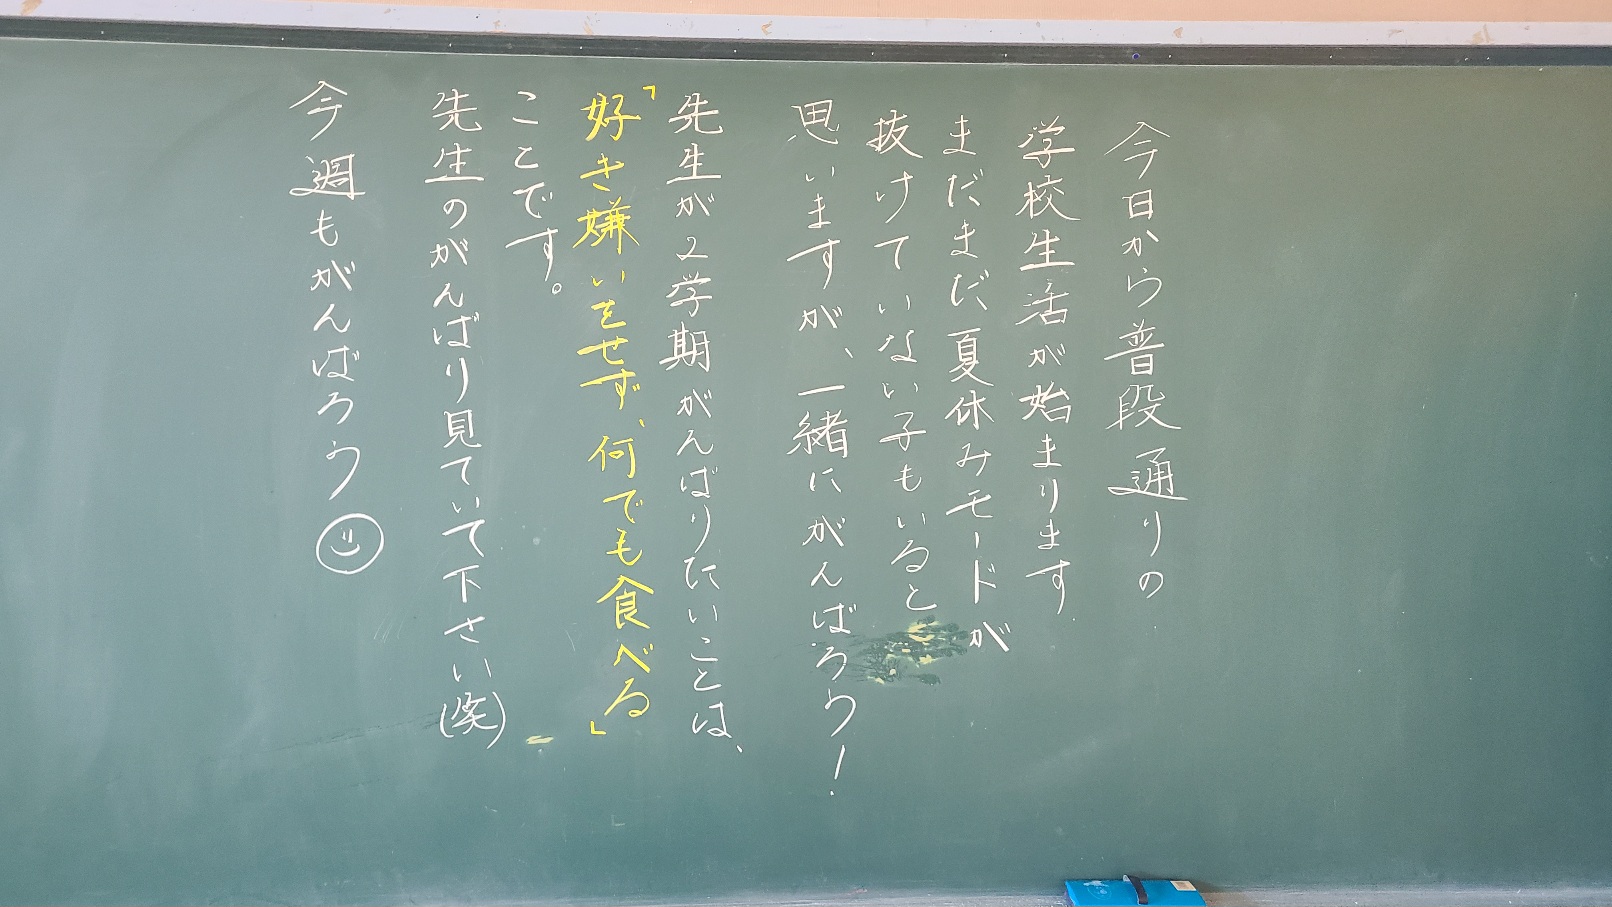 今日から普段通りの
学校生活が始まります
まだまだ夏休みモードが
抜けていない子もいると
思いますが、一緒にがんばろう!
先生が2学期がんばりたいことは、
「好き嫌いをせず、何でも食べる」
ことです。
先生のがんばり見ていて下さい(笑)
今週もがんばろう